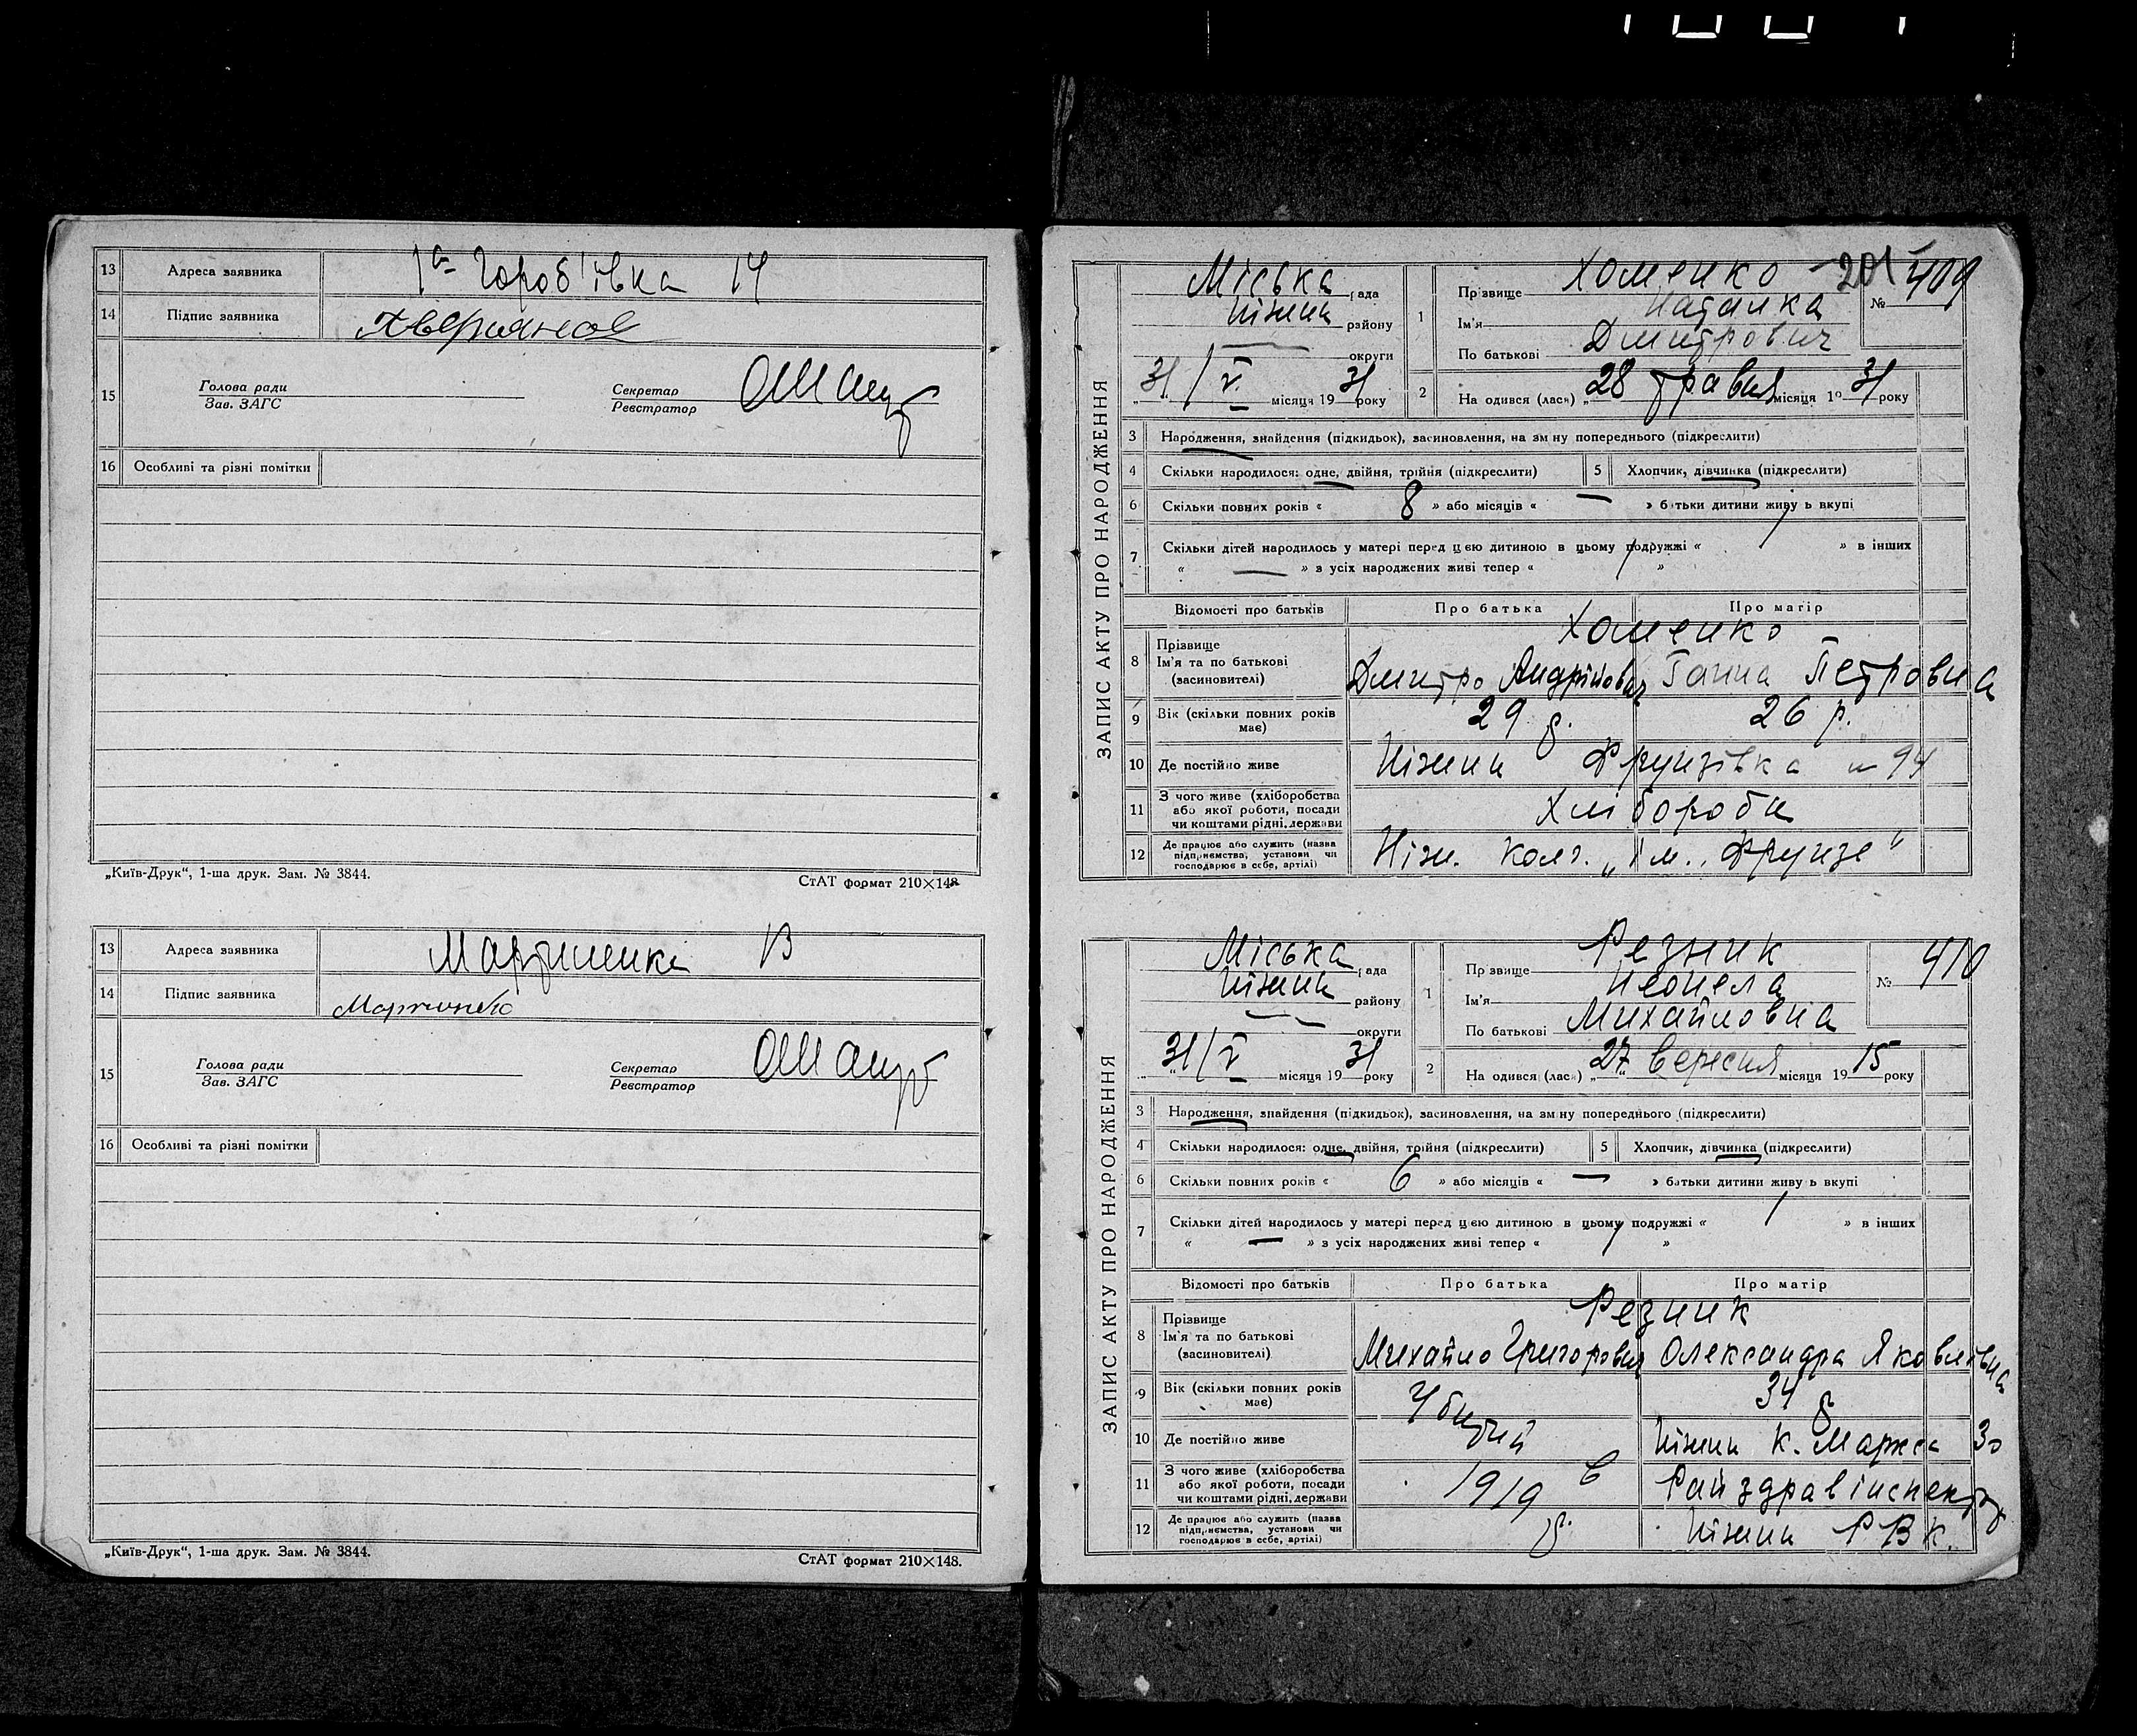 13 Адреса заявника 1а Гороб'івка 14
14 Підпис заявника
15 Голова ради Секретар
Зав. ЗАГС Реєстратор
16 Особливі та різні помітки
„Київ-Друк“, 1-ша друк. Зам. № 3844. СтАТ формат 210×148.
13 Адреса заявника Мартиненка 13
14 Підпис заявника
15 Голова ради Секретар
Зав. ЗАГС Реєстратор
16 Особливі та різні помітки
„Київ-Друк“, 1-ша друк. Зам. № 3844. СтАТ формат 210×148.
ЗАПИС АКТУ ПРО НАРОДЖЕННЯ
Міська рада
Ніжин району
округи
31/V місяця 1931 року
1 Прізвище Хоменко 201 № 409
Ім'я Наталка
По батькові Дмитрович
2 Народився (лась) „28 травня місяця 1931 року
3 Народження, знайдення (підкидьок), засиновлення, на зміну попереднього (підкреслити)
4 Скільки народилося: одне, двійня, трійня (підкреслити) 5 Хлопчик, дівчинка (підкреслити)
6 Скільки повних років « 8 » або місяців « — » батьки дитини живуть вкупі
7 Скільки дітей народилось у матері перед цією дитиною в цьому подружжі « / » в інших
« — » з усіх народжених живі тепер « / »
Відомості про батьків Про батька Про матір
8 Прізвище Хоменко
Ім'я та по батькові Дмитро Андрійович Ганна Петровна
(засиновителі)
9 Вік (скільки повних років має) 29 р. 26 р.
10 Де постійно живе Ніжин Фрунзівка № 94
11 З чого живе (хліборобства
або якої роботи, посади Хлібороби
чи коштами рідні, держави
12 Де працює або служить (назва
підприємства, установи чи Ніжн. колг. „ім. Фрунзе“
господарює в себе, артілі)
ЗАПИС АКТУ ПРО НАРОДЖЕННЯ
Міська рада
Ніжин району
округи
31/V місяця 1931 року
1 Прізвище Резник № 410
Ім'я Неонела
По батькові Михайловна
2 Народився (лась) „27“ вересня місяця 1915 року
3 Народження, знайдення (підкидьок), засиновлення, на зміну попереднього (підкреслити)
4 Скільки народилося: одне, двійня, трійня (підкреслити) 5 Хлопчик, дівчинка (підкреслити)
6 Скільки повних років « 6 » або місяців « — » батьки дитини живуть вкупі
7 Скільки дітей народилось у матері перед цією дитиною в цьому подружжі « / » в інших
« — » з усіх народжених живі тепер « / »
Відомості про батьків Про батька Про матір
8 Прізвище Резник
Ім'я та по батькові Михайло Григорович Олександра Яковлівна
(засиновителі)
9 Вік (скільки повних років має) Убитий 34 р
10 Де постійно живе Ніжин К. Маркса 30
11 З чого живе (хліборобства
або якої роботи, посади в 1919 р. Райздравінспектор
чи коштами рідні, держави
12 Де працює або служить (назва
підприємства, установи чи Ніжин РВК.
господарює в себе, артілі)